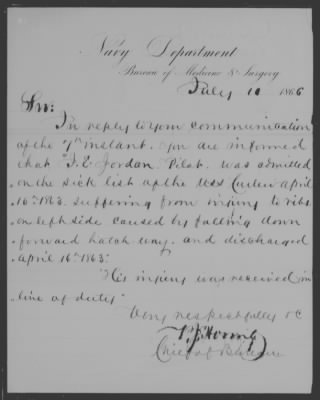 Navy Department
Bureau of Medicine & Surgery
July 11 1866
Sir:
In reply to your communication
of the 7" instant. you are informed
that "J. E. Jordan, Pilot. was admitted
on the sick list of the USS Curlew April
16th 1863. suffering from injury to ribs
on left side caused by falling down
forward hatch way. and discharged
April 16th 1863."
"His injury was received in
line of duty"
Very respectfully &c
Chief of Bureau